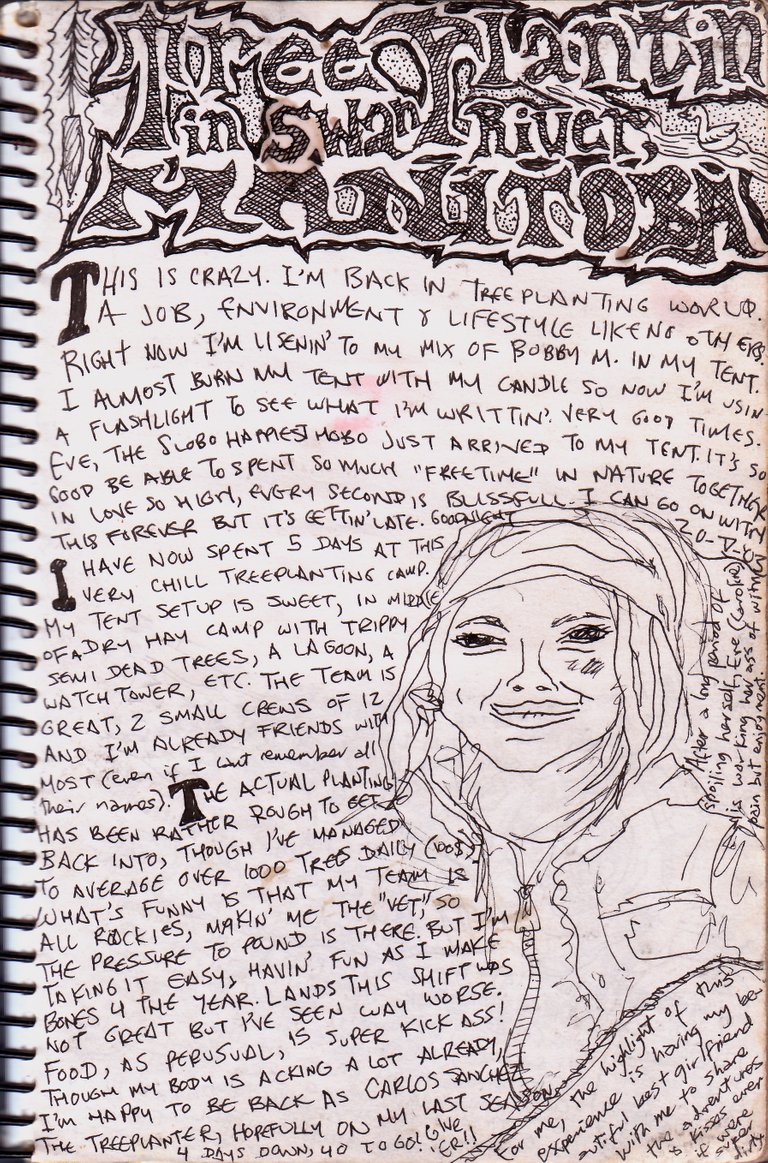 Tree Plantin
in Swan River,
MANITOBA
THIS IS CRAZY. I'M BACK IN TREEPLANTING WORLD.
A JOB, ENVIRONMENT & LIFESTYLE LIKE NO OTHERS.
RIGHT NOW I'M LISENIN' TO MY MIX OF BOBBY M. IN MY TENT.
I ALMOST BURN MY TENT WITH MY CANDLE SO NOW I'M USIN
A FLASHLIGHT TO SEE WHAT I'M WRITTIN'. VERY GOOD TIMES.
EVE, THE SLOBO HAPPIEST HOBO JUST ARRIVED TO MY TENT. IT'S SO
GOOD BE ABLE TO SPENT SO MUCH "FREETIME" IN NATURE TOGETHER
IN LOVE SO HIGH, EVERY SECOND IS BLISSFULL. I CAN GO ON WITH
THIS FOREVER BUT IT'S GETTIN' LATE. GOODNIGHT
I HAVE NOW SPENT 5 DAYS AT THIS
VERY CHILL TREEPLANTING CAMP.
MY TENT SETUP IS SWEET, IN MIDDLE
OF A DRY HAY CAMP WITH TRIPPY
SEMI DEAD TREES, A LAGOON, A
WATCHTOWER, ETC. THE TEAM IS
GREAT, 2 SMALL CREWS OF 12
AND I'M ALREADY FRIENDS WITH
MOST (even if I cant remember all
their names). THE ACTUAL PLANTING
HAS BEEN RATHER ROUGH TO GET
BACK INTO, THOUGH I'VE MANAGED
TO AVERAGE OVER 1000 TREES DAILY (100$)
WHAT'S FUNNY IS THAT MY TEAM IS
ALL ROOCKIES, MAKIN' ME THE "VET," SO
THE PRESSURE TO POUND IS THERE. BUT I'M
TAKING IT EASY, HAVIN' FUN AS I MAKE
BONES 4 THE YEAR. LANDS THIS SHIFT WAS
NOT GREAT BUT I'VE SEEN WAY WORSE.
FOOD, AS PERUSUAL, IS SUPER KICK ASS!
THOUGH MY BODY IS ACKING A LOT ALREADY,
I'M HAPPY TO BE BACK AS CARLOS SANCHEZ
THE TREEPLANTER, HOPEFULLY ON MY LAST SEASON
4 DAYS DOWN, 40 TO GO! GIVE
'ER!!
After a long period of
spoiling herself, Eve (Caroline)
is working her ass of without
pain but enjoyment.
For me, the highlight of this
experience is having my be
autiful best girlfriend
with me to share
the adventures
& kisses even
if were
super
dirty.